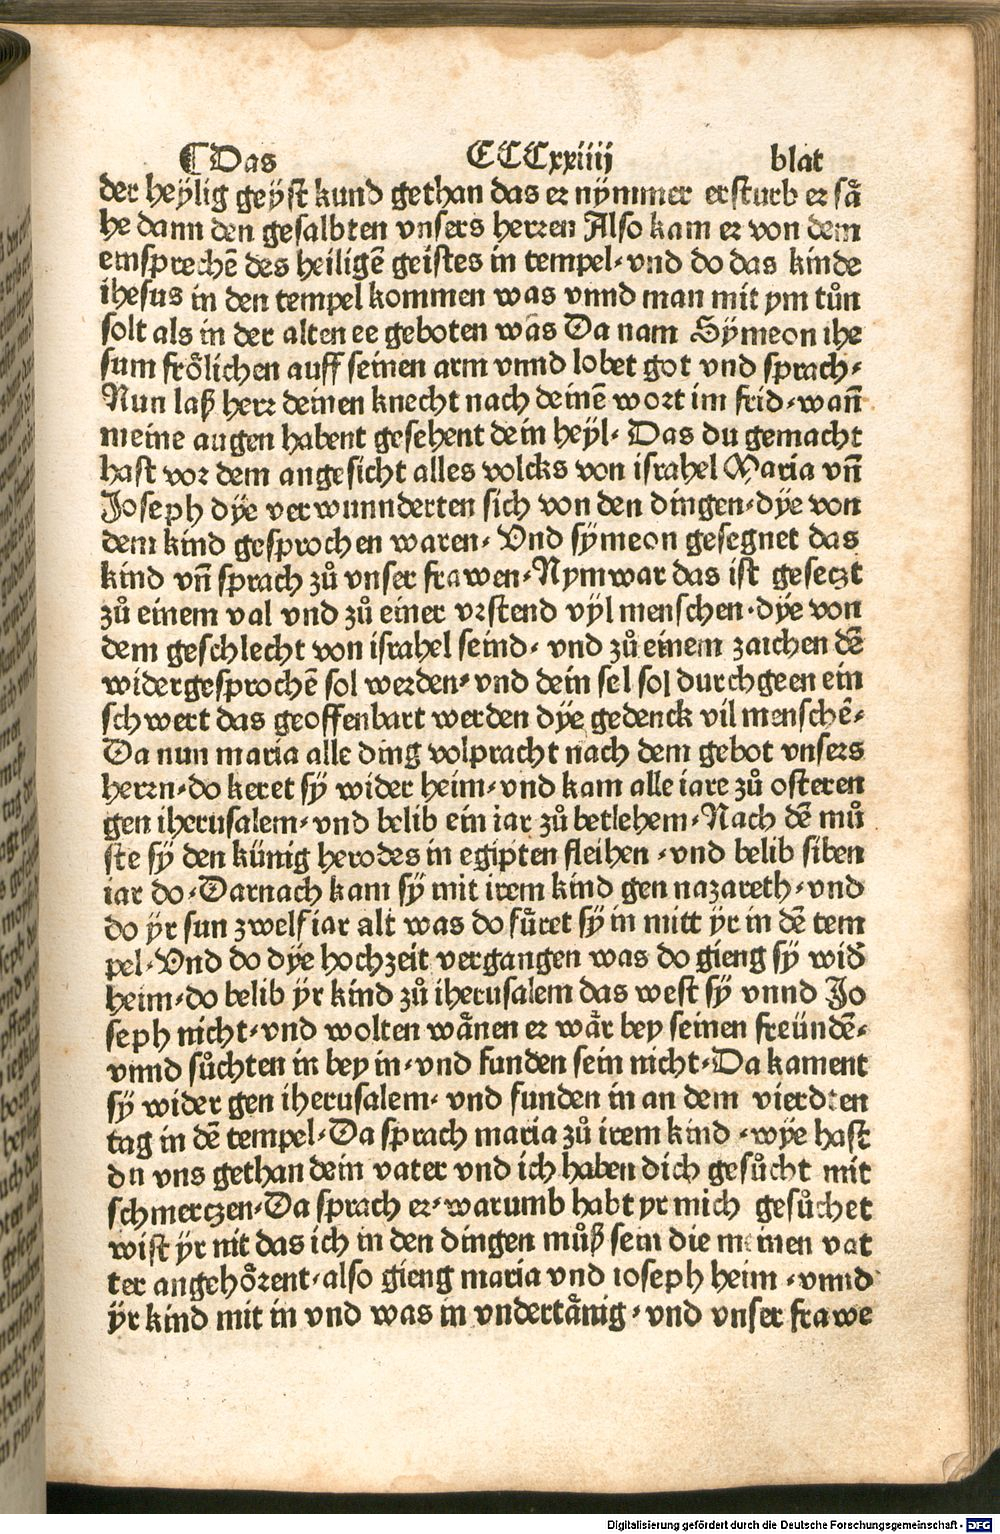 ¶ Das CCCxxiiij blat
der heÿlig geÿst kund gethan das er nÿmmer ersturb er sä
he dann den gesalbten vnsers herren Also kam er von dem
einsprechē des heiligē geistes in tempel⸗ vnd do das kinde
ihesus in den tempel kommen was vnnd man mit ym tůn
solt als in der alten ee geboten was Da nam Sÿmeon ihe
sum frölichen auff seinen arm vnnd lobet got vnd sprach⸗
Nun laß herr deinen knecht nach deinē wort im frid⸗ wañ
meine augen habent gesehent dein heÿl⸗ Das du gemacht
hast vor dem angesicht alles volcks von israhel Maria vñ
Joseph dÿe verwunnderten sich von den dingen⸗ dÿe von
dem kind gesprochen waren⸗ Vnd sÿmeon gesegnet das
kind vñ sprach zů vnser frawen⸗ Nym war das ist geseczt
zů einem val vnd zů einer vrstend vÿl menschen⸗ dÿe von
dem geschlecht von israhel seind⸗ vnd zů einem zaichen dē
widergesprochē sol werden⸗ vnd dein sel sol durchgeen ein
schwert das geoffenbart werden dÿe gedenck vil menschē⸗
Da nun maria alle ding volpracht nach dem gebot vnsers
herrn⸗ do keret sÿ wider heim⸗ vnd kam alle iare zů osteren
gen iherusalem⸗ vnd belib ein iar zů betlehem⸗ Nach dē mů
ste sÿ den künig herodes in egipten fleihen ⸗ vnd belib siben
iar do⸗ Darnach kam sÿ mit irem kind gen nazareth⸗ vnd
do ÿr sun zwelf iar alt was do fůret sÿ in mitt ÿr in dē tem
pel⸗ Vnd do dÿe hochzeit vergangen was do gieng sÿ wid̄
heim⸗ do belib ÿr kind zů iherusalem das west sÿ vnnd Jo
seph nicht⸗ vnd wolten wänen er wär bey seinen freündē⸗
vnnd sůchten in bey in⸗ vnd funden sein nicht⸗ Da kament
sÿ wider gen iherusalem⸗ vnd funden in an dem vierdten
tag in dē tempel⸗ Da sprach maria zů irem kind ⸗ wÿe hast
du vns gethan dein vater vnd ich haben dich gesůcht mit
schmerczen⸗ Da sprach er⸗ warumb habt yr mich gesůchet
wist ÿr nit das ich in den dingen můß sein die meinen vat
ter angehörent⸗ also gieng maria vnd ioseph heim ⸗ vnnd
ÿr kind mit in vnd was in vndertänig⸗ vnd vnser frawe
Digitalisierung gefördert durch die Deutsche Forschungsgemeinschaft - DFG